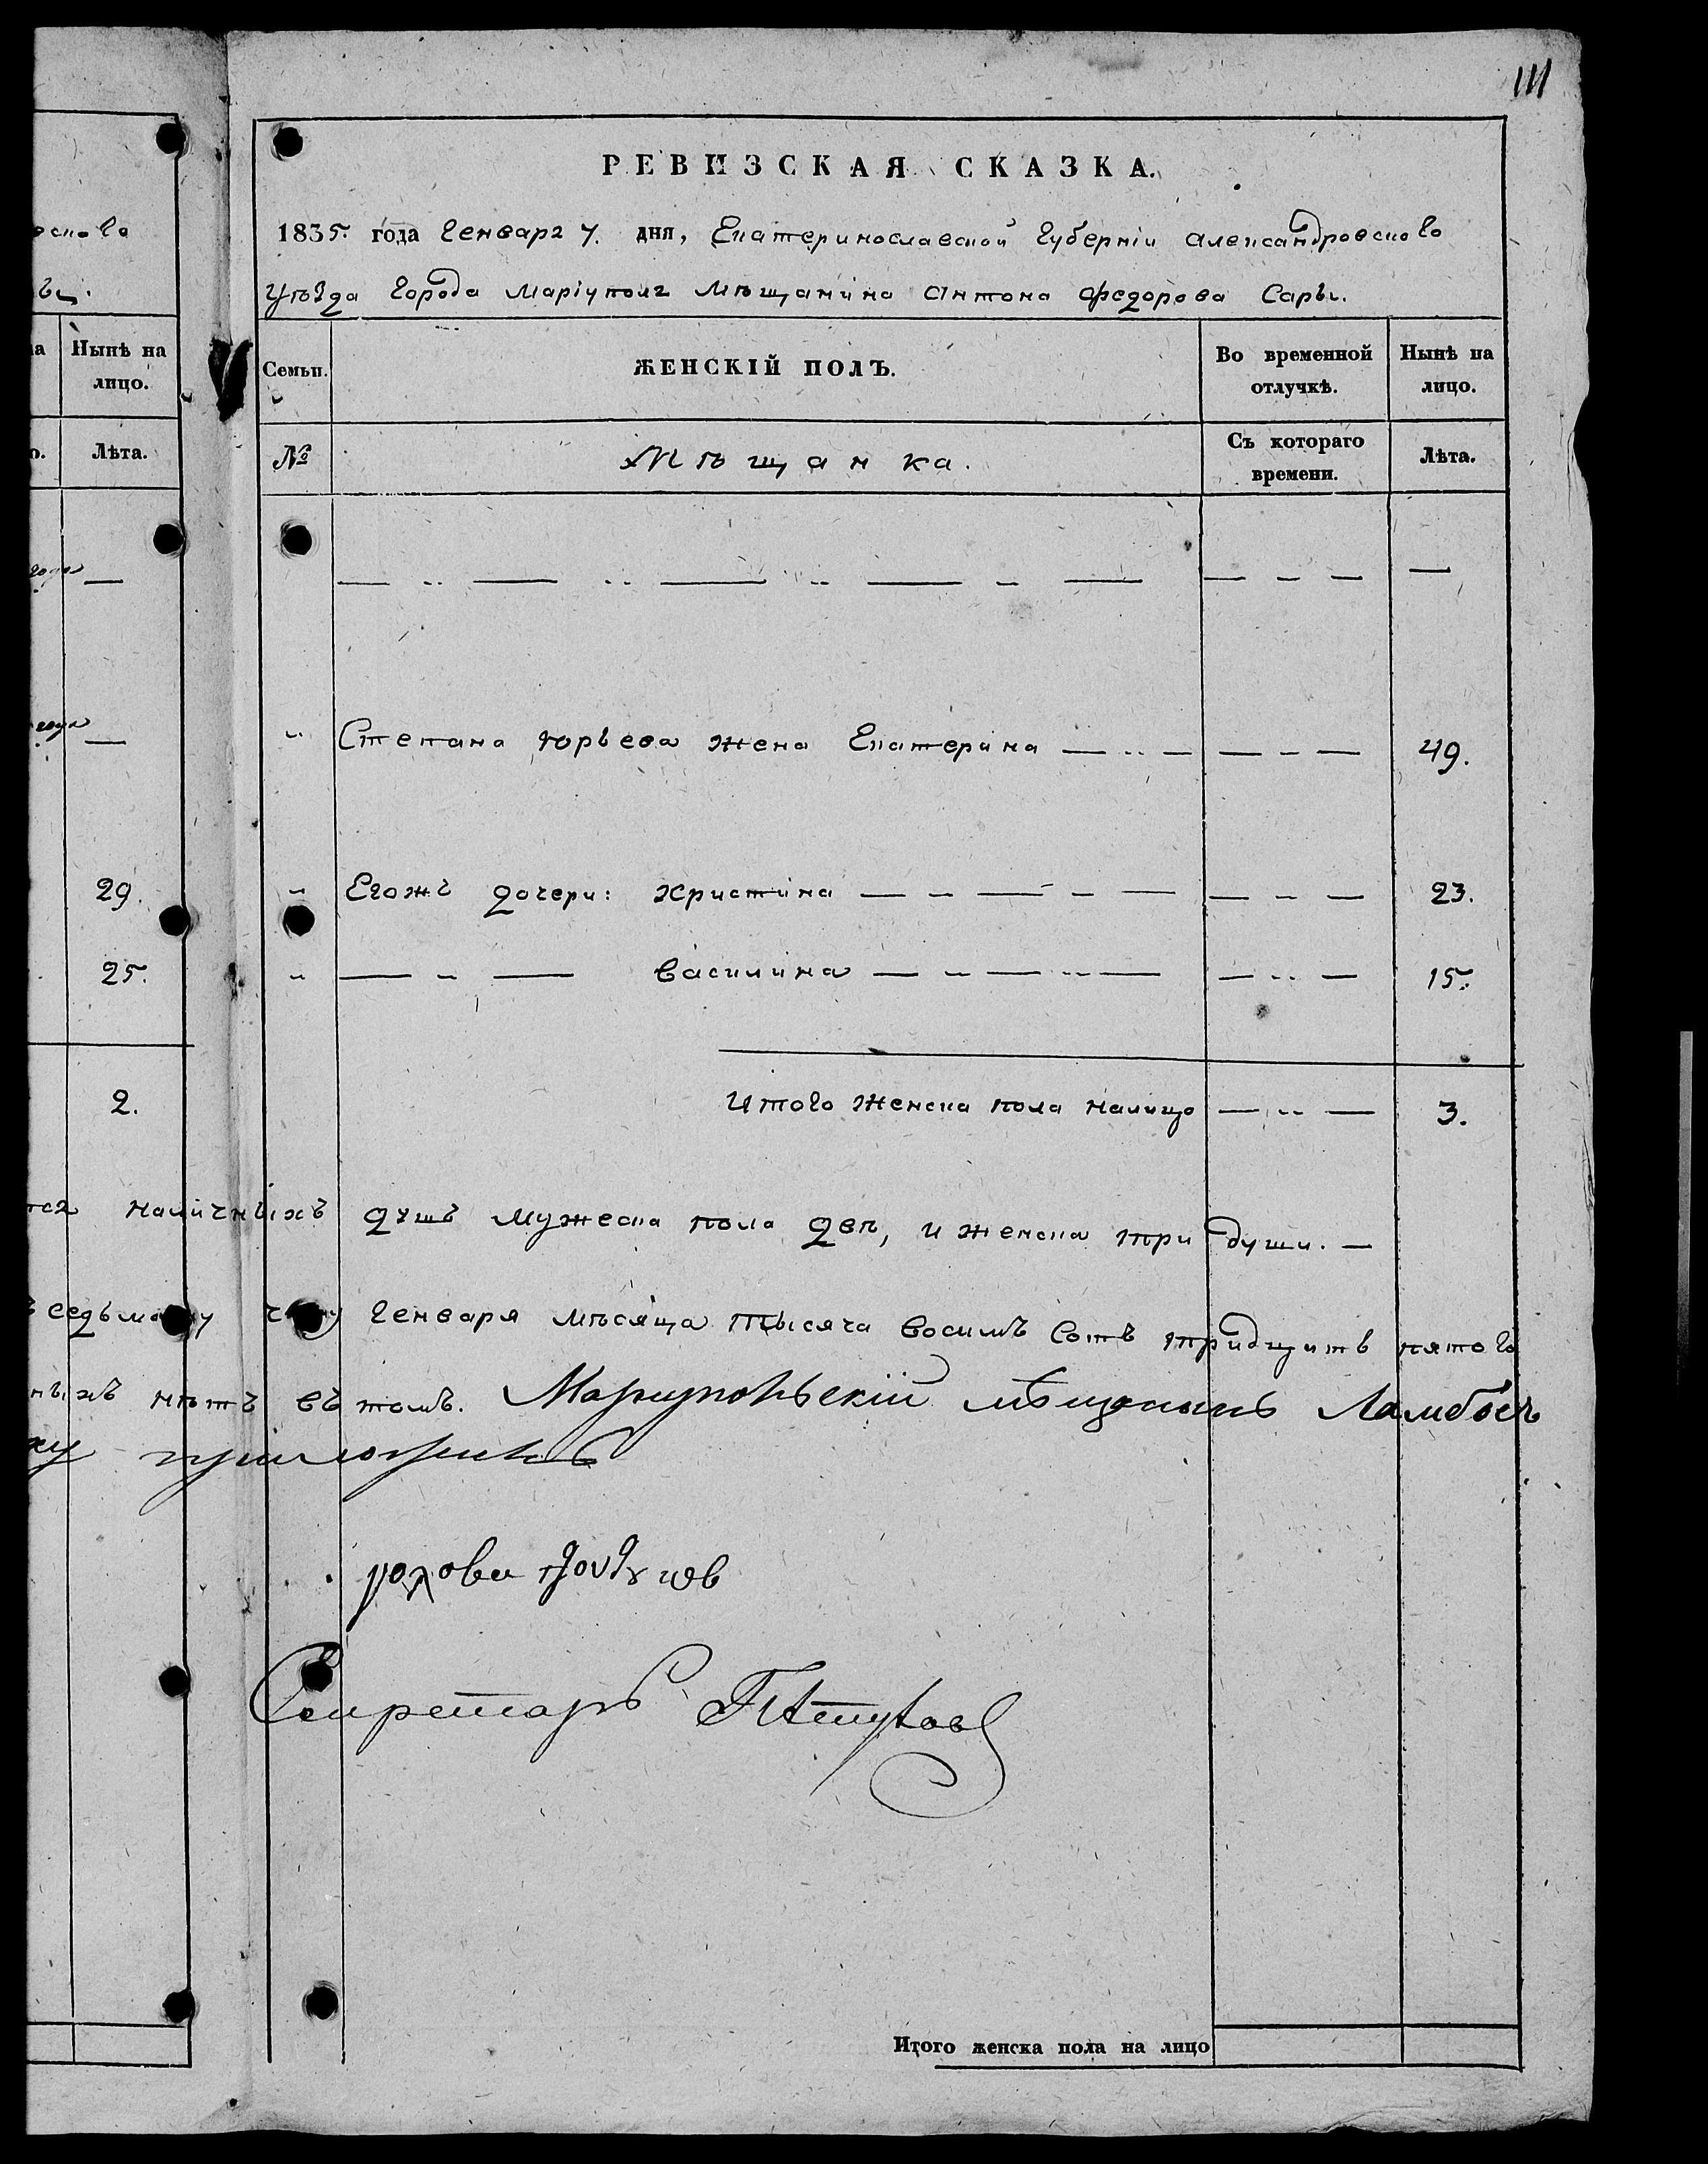 111
РЕВИЗСКАЯ СКАЗКА.
1835. года Генваря 7. дня, Екатеринославской Губерніи Александровского
Уѣзда Города Маріуполя Мѣщанина Антона Федорова Сары.
Нынѣ на лицо.
Семьи.
ЖЕНСКІЙ ПОЛЪ.
Во временной отлучкѣ.
Нынѣ на лицо.
Лѣта.
№
Мѣщанка.
Съ котораго времени.
Лѣта.
года —
— „ — „ — „ — - — — - — —
года —
„ Степана Юрьева жена Екатерина — „ — — - — 49.
29. „ Егожъ дочери: Христина — „ — - — — - — 23.
25. „ — „ — Василина — „ — „ — — „ — 15.
2. Итого женска пола налицо — „ — 3.
наличныхъ душъ мужеска пола двѣ, и женска три души. —
седьмому Генваря мѣсяца тысяча восимъ сотъ тридцить пятого
нѣтъ въ томъ. Мариупольскій мѣщанинъ
приложилъ
Секретарь
Итого женска пола на лицо